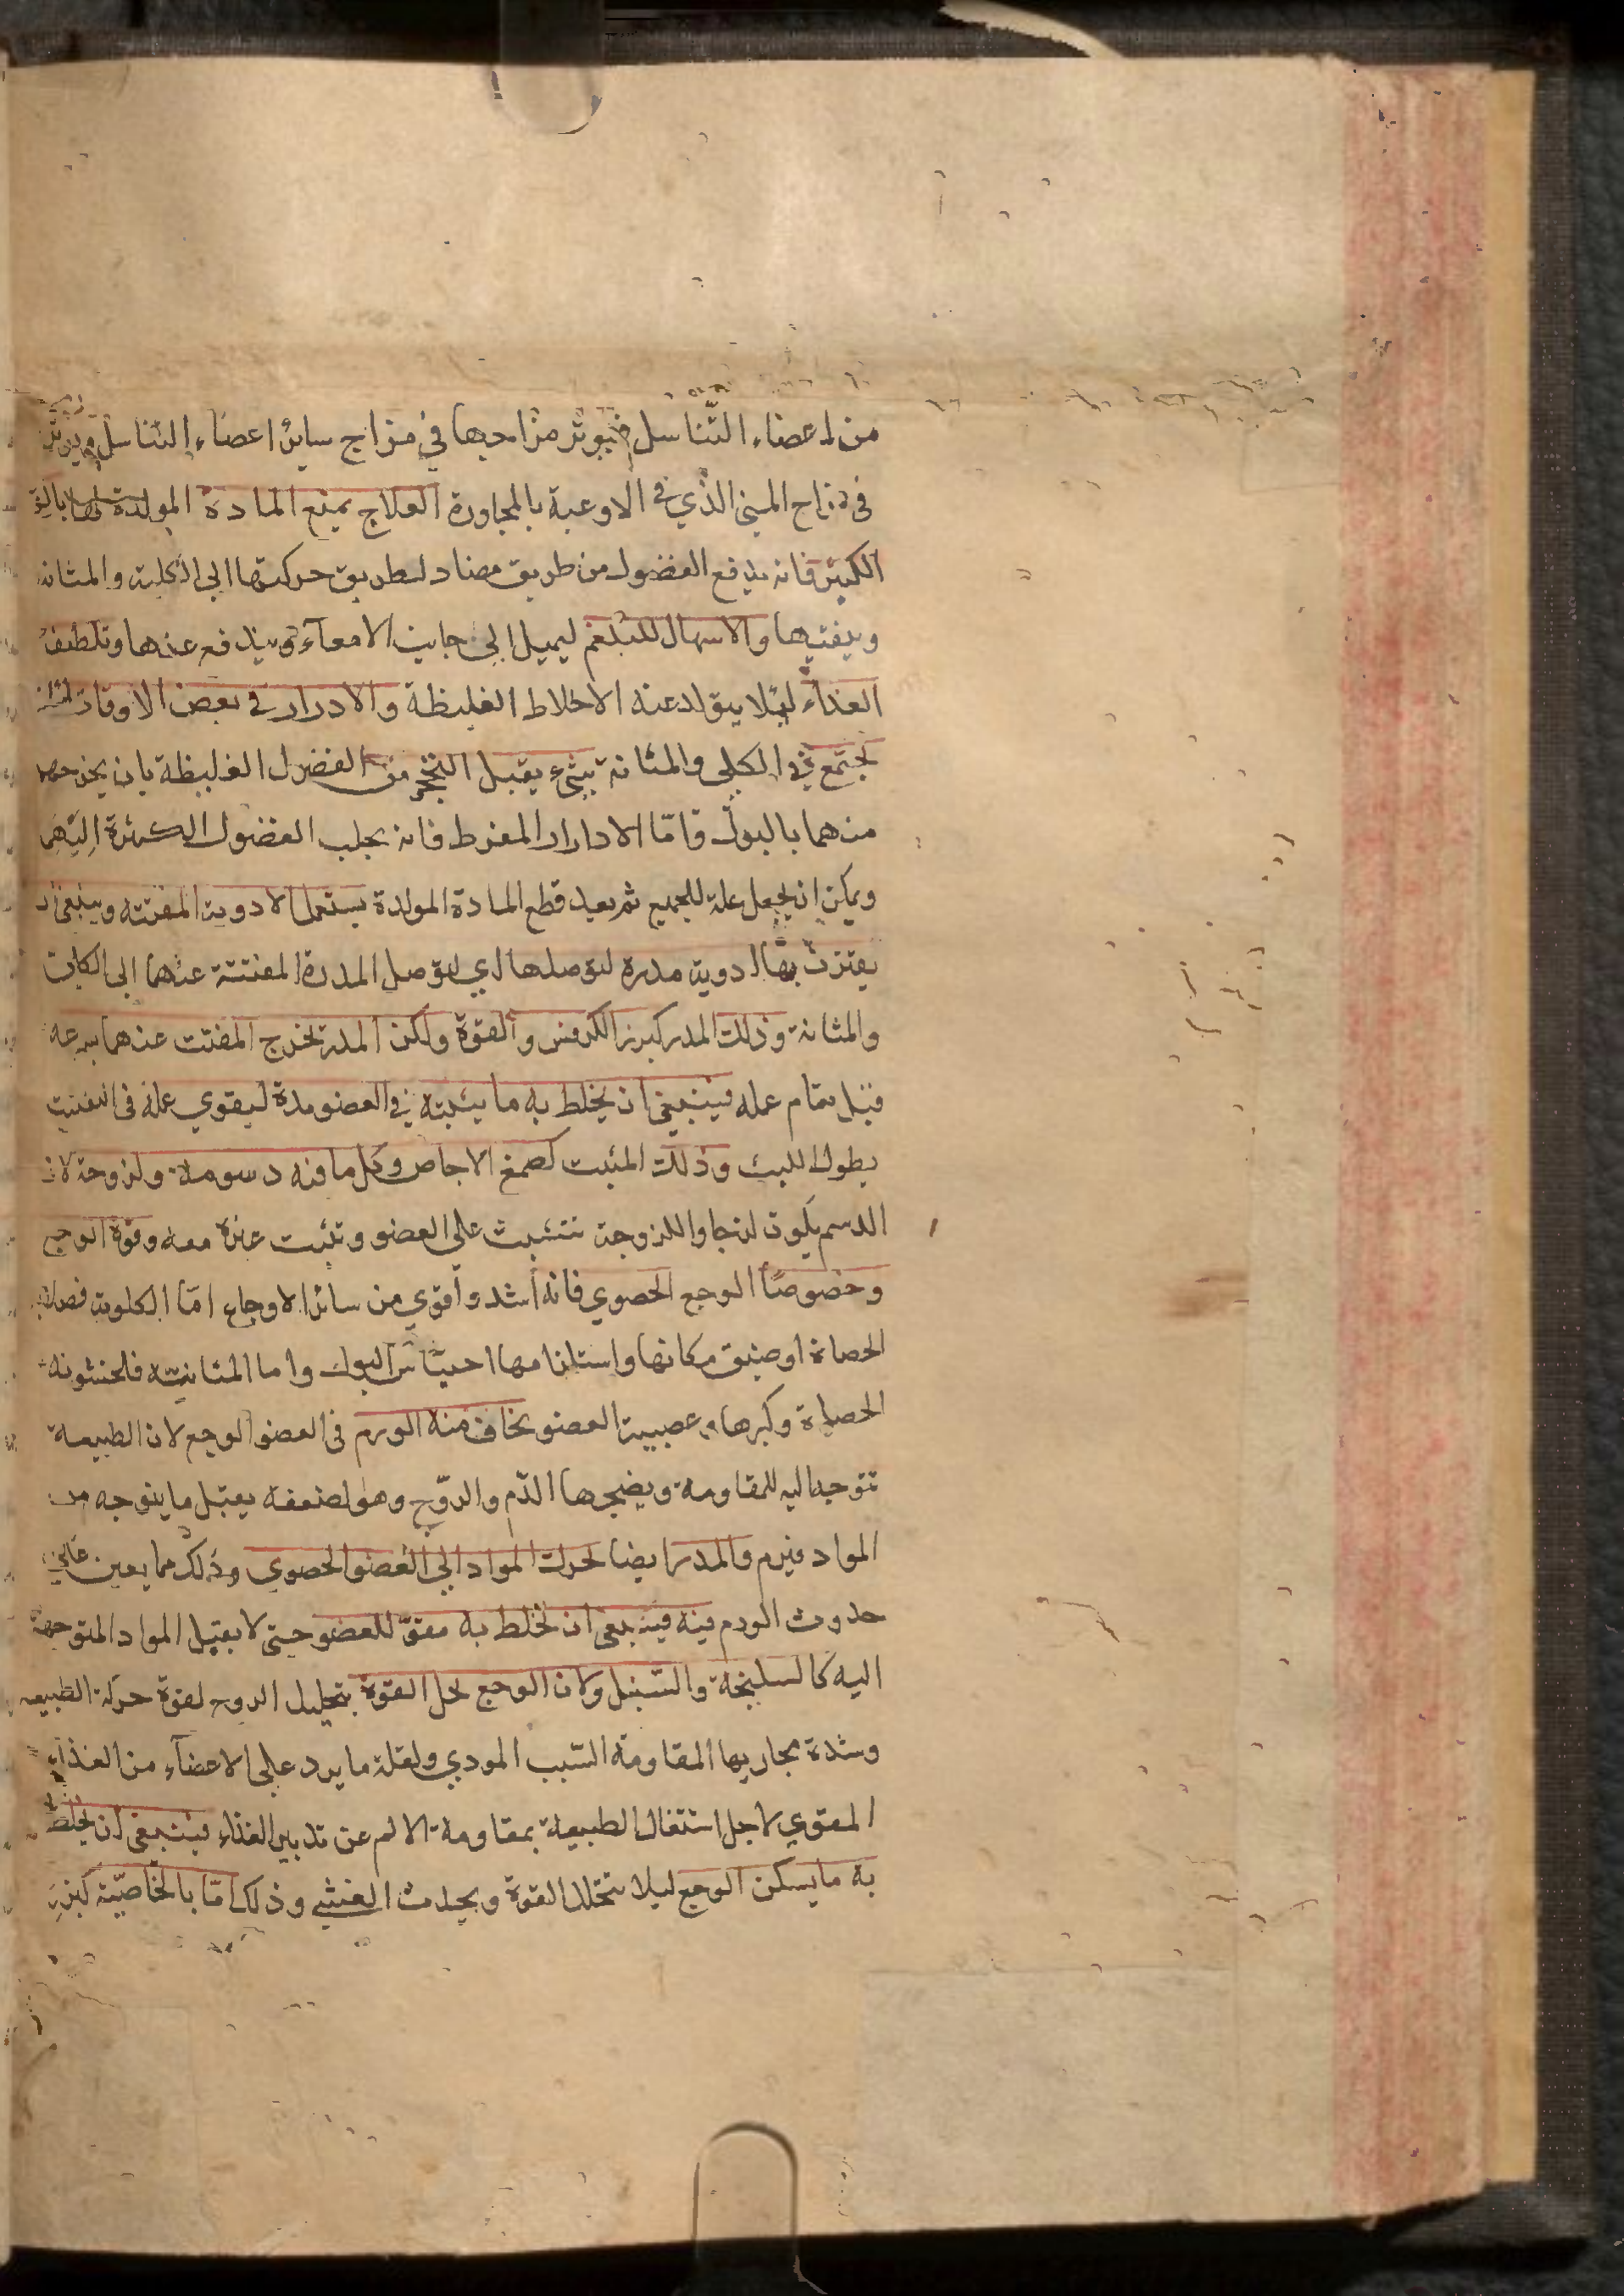 من اعضاء التناسل فيوثر مزاجها في مزاج ساير اعضاء التناسل ويوثر
في مزاج المني الذي في الاوعية بالمجاورة العلاج يمنع المادة المولدة لها بالقي
الكثير فانه يدفع الفضول من طريق مضاد لطريق حركتها الي الكلية والمثانه
وينقيها والاسهال للبلغم ليميل الي جانب الامعآء ويندفع عنهما وتلطيف
الغذآء ليلا يتولد عنه الاخلاط الغليظة والادرار في بعض الاوقات لئلا
يجتمع في الكلي والمثانة شيء يقبل التحجر من الفضول الغليظة بان يخرجها
منهما بالبول فامّا الادرار المفرط فانه يجلب الفضول الكثيرة اليهما
ويمكن ان يجعل علة للجميع ثم بعد قطع المادة المولدة يستعمل الادوية المفتته وينبغي ان
يقترن بها ادوية مدرة لتوصلها اي لتوصل المدرة المفتتة عنهما الي الكليه
والمثانة وذلك المدر كبزر الكرفس والفوة ولكن المدر يخرج المفتت عنهما بسرعه
قبل تمام عمله فينبغي ان يخلط به ما يثبته في العضو مدة ليقوي عمله في التفتيت
بطول اللبث وذلك المثبت كصمغ الاجاص وكل ما فيه دسومة ولزوجة لان
الدسم يكون لزجا واللزوجة تتشبث علي العضو وتثبت غيره معه وقوة الوجع
وخصوصًا الوجع الحصوي فانه اشد واقوي من سائر الاوجاع امّا الكلوية فصلابة
الحصاة او ضيق مكانها واستلزامها احتباس البول واما المثانية فلخشونه
الحصاة وكبرها وعصبية العضو يخاف منه الورم في العضو الوجع لان الطبيعة
تتوجه اليه للمقاومة ويصحبها الدّم والروّح وهو لضعفه يقبل ما يتوجه من
المواد فيرم والمدر ايضا يحرك المواد الي العضو الحصوي وذلك مما يعين علي
حدوث الورم فيه فينبغي ان يخلط به مقوّ للعضو حتي لا يقبل المواد المتوجهة
اليه كالسليخة والسّنبل ولان الوجع يحل القوة بتحليل الروح لقوة حركة الطبيعه
وشدة مجاريها المقاومة السّبب الموذي ولقلة ما يرد علي الاعضآء من الغذآء
المقوي لاجل اشتغال الطبيعة بمقاومة الالم عن تدبير الغذاء فينبغي ان يخلط
به ما يسكن الوجع ليلا تتحلل القوة ويحدث الغشي وذلك امّا بالخاصّية كبزر